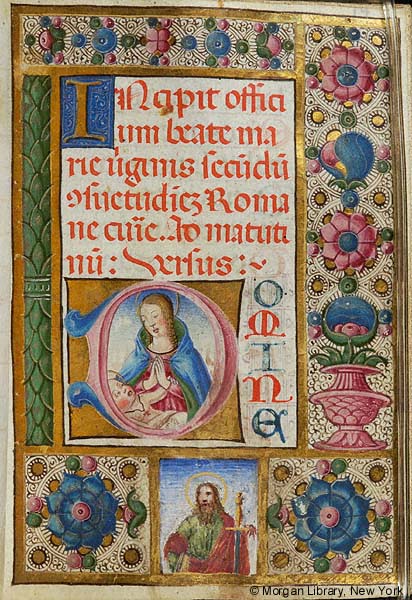 INcipit offici
um beate ma
rie v̄ginis secūdū
ꝯsuetudiēz Roma
ne curie. Ad matuti
nū: Versus:
DO
MI
NE
© Morgan Library, New York